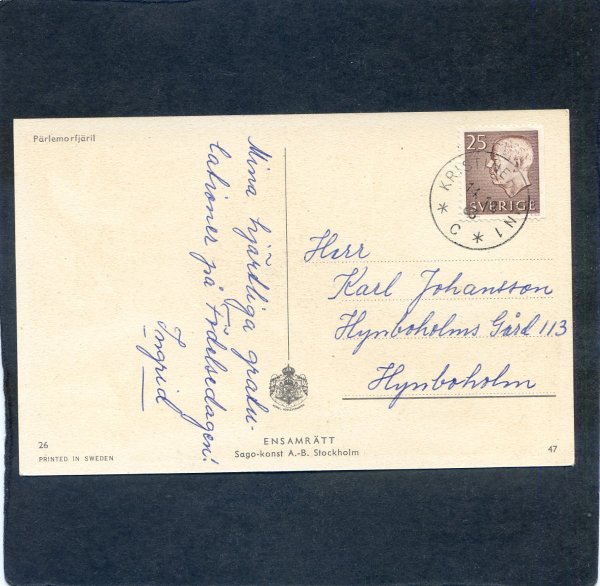 Pärlemorfjäril
Mina hjärtliga gratu-
lationer på Födelsedagen!
Ingrid
25
SVERIGE
Herr
Karl Johansson
Hynboholms Gård 113
Hynboholm
26
PRINTED IN SWEDEN
ENSAMRÄTT
Sago-konst A.-B. Stockholm
47